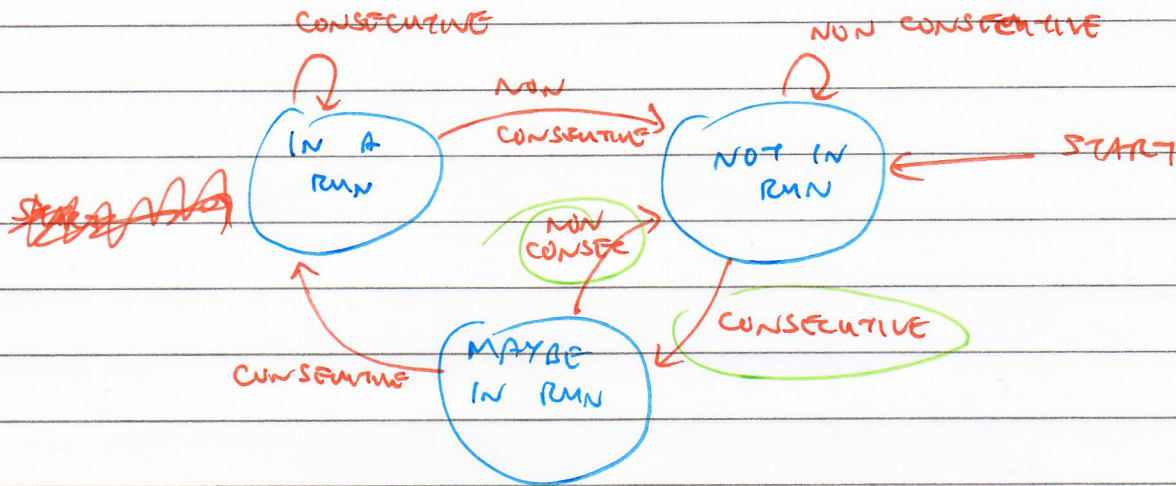 CONSECUTIVE
NON CONSECUTIVE
NON
CONSECUTIVE
IN A
RUN
NOT IN
RUN
START
NON
CONSEC
CONSECUTIVE
MAYBE
IN RUN
CONSECUTIVE